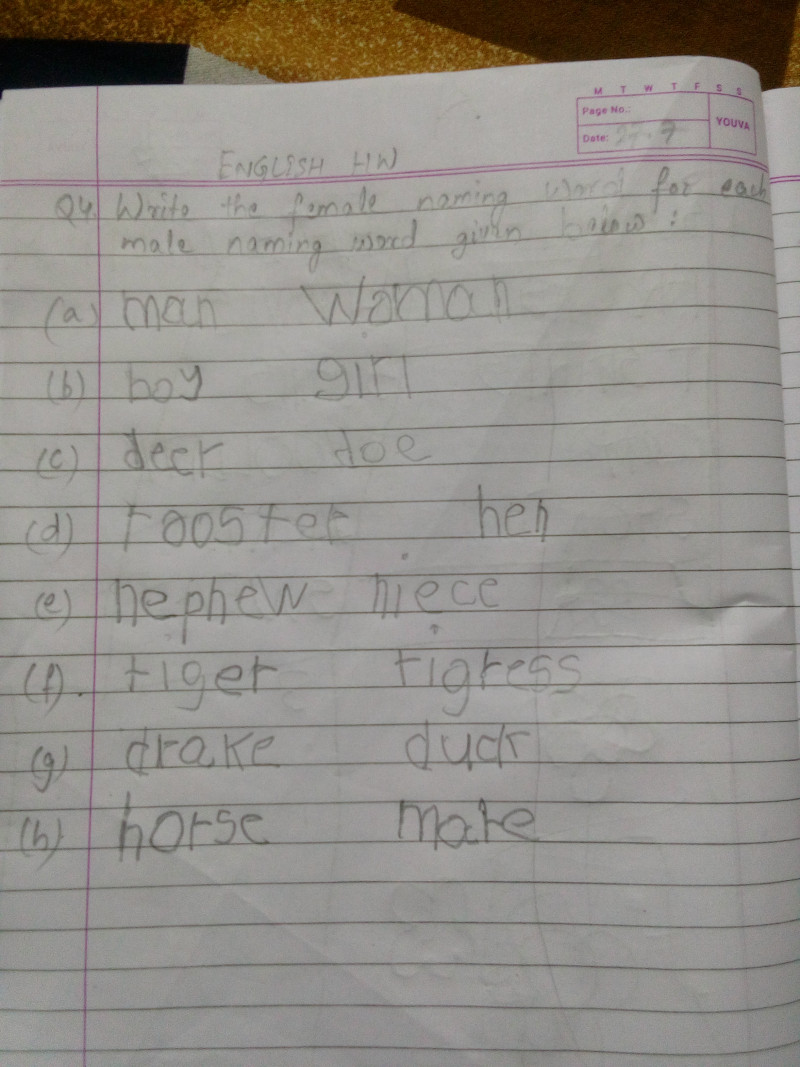 M T W T F S S
Page No.:
YOUVA
Date: 27.7
ENGLISH HW
Q4. Write the female naming word for each
male naming word given below :
(a) man woman
(b) boy girl
(c) deer doe
(d) rooster hen
(e) nephew niece
(f). tiger tigress
(g) drake duck
(h) horse mare